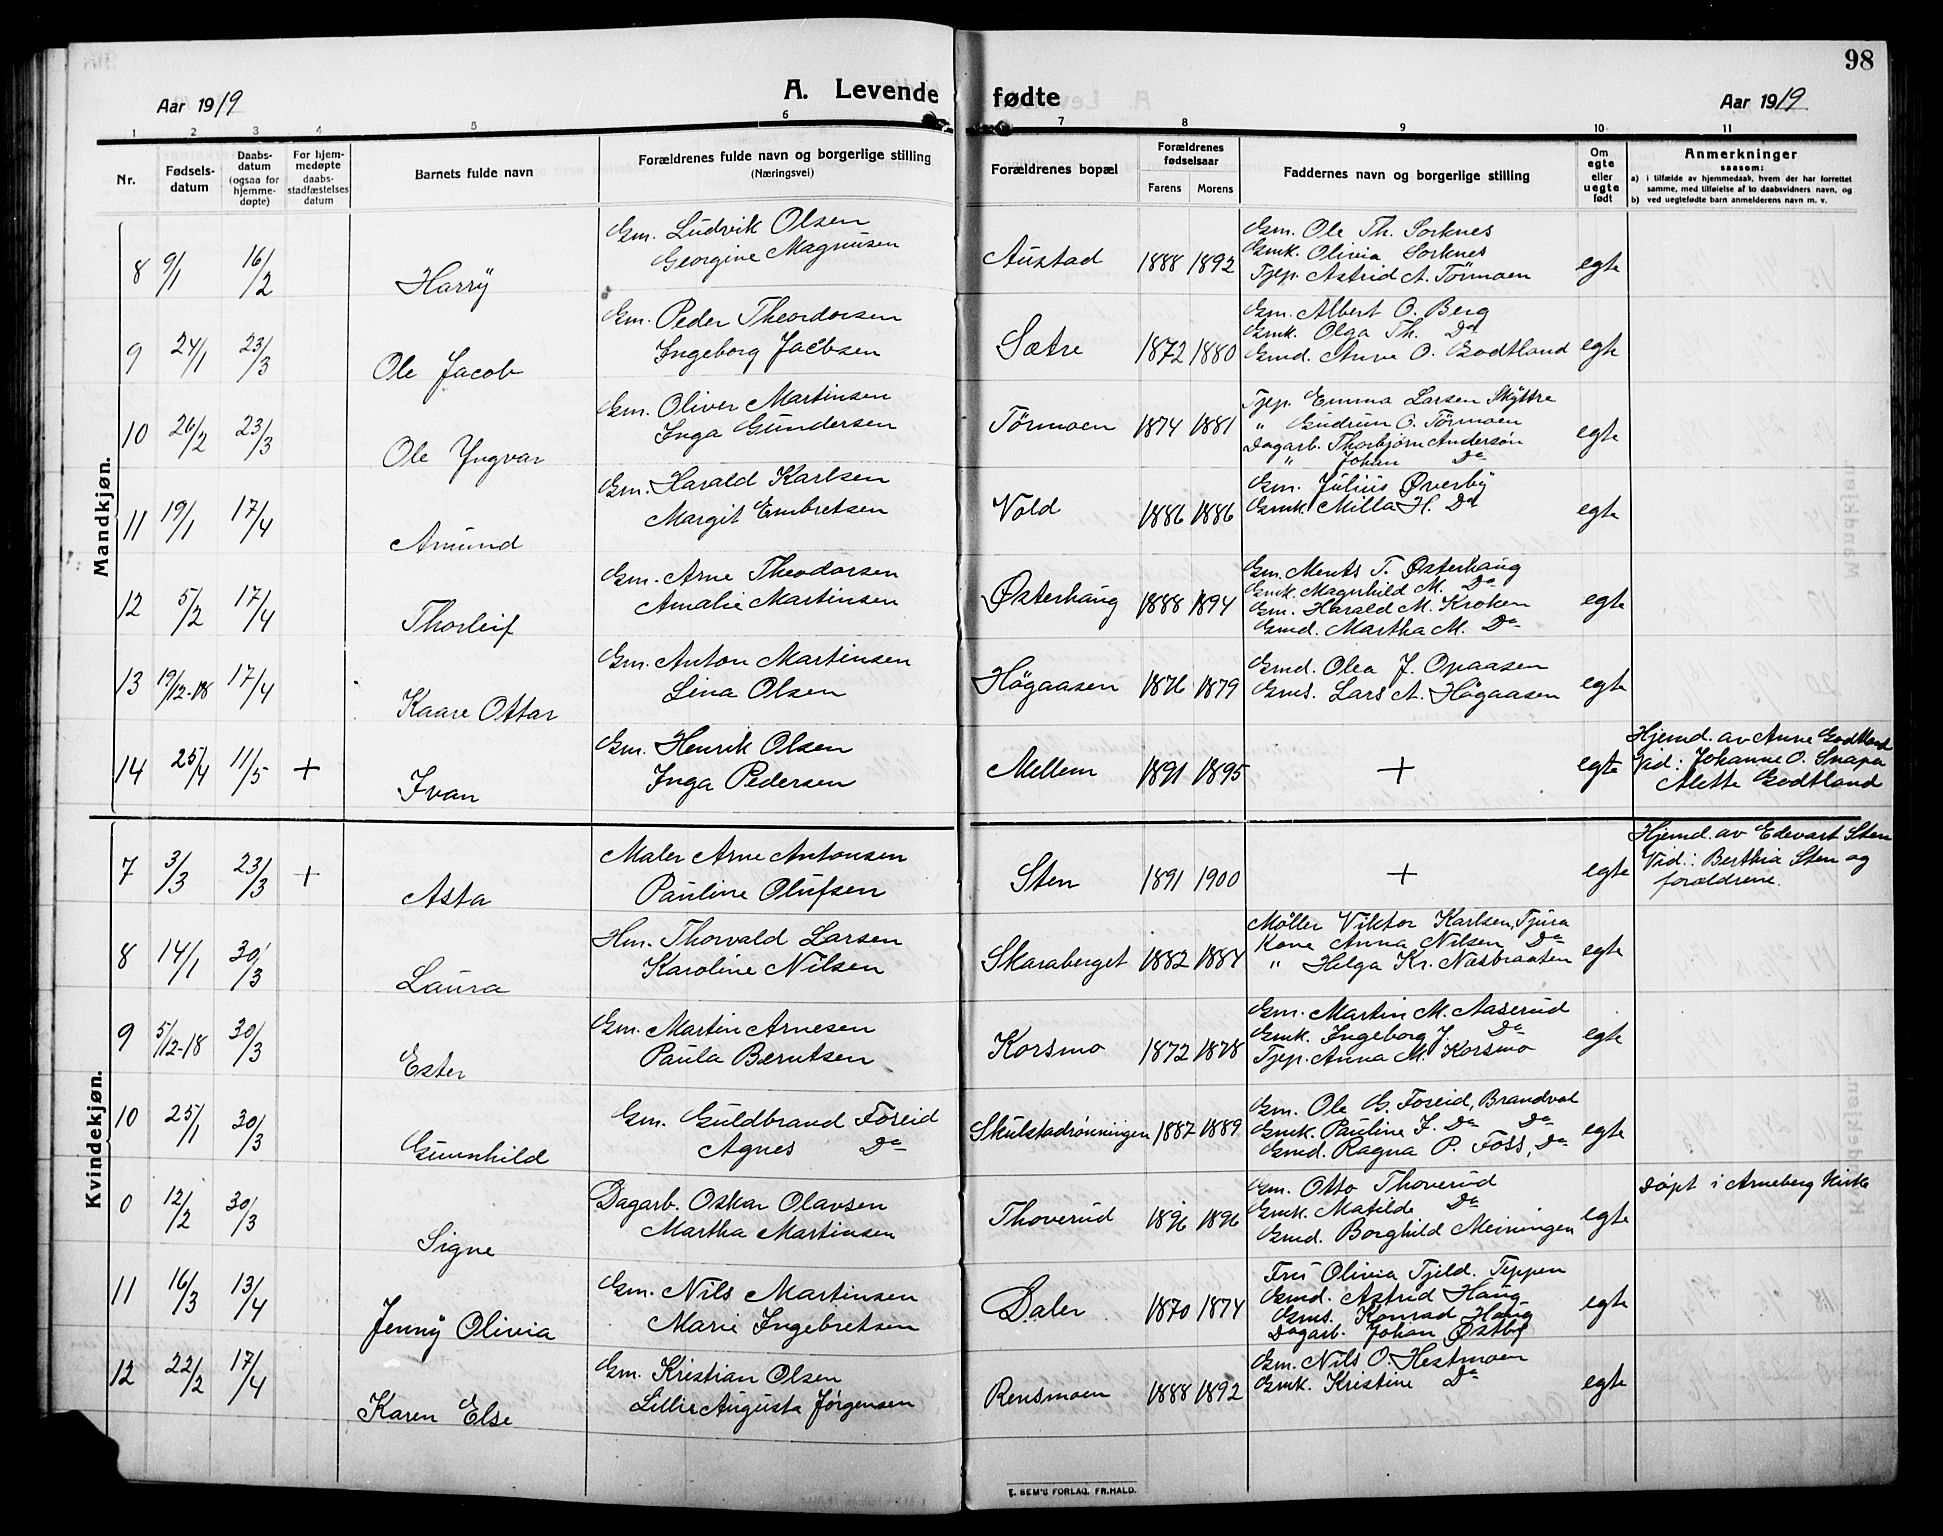 98
A. Levende fødte
Aar 1919
Aar 1919
1 2 3 4 5 6 7 8 9 10 11
Nr.
Fødsels-
datum
Daabs-
datum
(ogsaa for
hjemme-
døpte)
For hjem-
medøpte
daabs-
stadfæstelses
datum
Barnets fulde navn
Forældrenes fulde navn og borgerlige stilling
(Næringsvei)
Forældrenes bopæl
Forældrenes
fødselsaar
Farens Morens
Faddernes navn og borgerlige stilling
Om
egte
eller
uegte
født
Anmerkninger
saasom:
a) i tilfælde av hjemmedaab, hvem der har forrettet
samme, med tilføielse af to daabsvidners navn, og
b) ved uegtefødte barn anmelderens navn m. v.
Mandkjøn.
8 9/1 16/2 Harry
Gm. Ludvik Olsen
Georgine Magnusen
Austad 1888 1892
Gm. Ole Th. Sorknes
Gmk. Olivia Sorknes
Tjep. Astrid A. Törmoen
egte
9 24/1 23/3 Ole Jacob
Gm. Peder Theordorsen
Ingeborg Jacobsen
Sætre 1872 1880
Gm. Albert O. Berg
Gmk. Olga Th. Do
Gmd. Anne O. Godtland
egte
10 26/2 23/3 Ole Yngvar
Gm. Oliver Martinsen
Inga Gundersen
Törmoen 1874 1881
Tjep. Emma Larsen Skyttre
" Gudrun O. Törmoen
Dagarb. Thorbjørn Anderson
" Johan Do
egte
11 19/1 17/4 Amund
Gm. Harald Karlsen
Margit Embretsen
Vold 1886 1886
Gm. Julius Øverby
Gmk. Milla H. Do
egte
12 5/2 17/4 Thorleif
Gm. Arne Theodorsen
Amalie Martinsen
Østerhaug 1888 1894
Gm. Ments T. Østerhaug
Gmk. Magnhild M. Do
Gm. Harald M. Kroken
Gmd. Martha M. Do
egte
13 19/12-18 17/4 Kaare Ottar
Gm. Anton Martinsen
Lina Olsen
Høgaasen 1876 1879
Gmd. Olea J. Opaasen
Gms. Lars A. Høgaasen
egte
14 25/4 11/5 + Ivan
Gm. Henrik Olsen
Inga Pedersen
Mellem 1891 1895
+
egte
Hjemd. av Anne Godtland
Vid: Johanne O. Snapa
Alette Godtland
Kvindekjøn.
7 3/3 23/3 + Asta
Maler Arne Antonsen
Pauline Olufsen
Sten 1891 1900
+
egte
Hjemd. av Edevart Sten
Vid: Berthia Sten og
forældrene.
8 14/1 30/3 Laura
Hm. Thorvald Larsen
Karoline Nilsen
Skaraberget 1882 1884
Møller Viktor Karlsen, Tjura
Kone Anna Nilsen Do
" Helga Kr. Næsbraaten
egte
9 5/12-18 30/3 Ester
Gm. Martin Arnesen
Paula Berntsen
Korsmo 1872 1878
Gm. Martin M. Aaserud
Gmk. Ingeborg J. Do
Tjep. Anna M. Korsmo
egte
10 25/1 30/3 Gunnhild
Gm. Guldbrand Foseid
Agnes Do
Skulstadrønningen 1887 1889
Gm. Ole G. Foseid, Brandval
Gmk. Pauline F. Do Do
Gmd. Ragna P. Foss, Do
egte
0 12/2 30/3 Signe
Dagarb. Oskar Olavsen
Martha Martinsen
Thoverud 1896 1896
Gm. Otto Thoverud
Gmk. Matilde Do
Gmd. Borghild Meiningen
egte
Døpt i Arneberg Kirke
11 16/3 13/4 Jenny Olivia
Gm. Nils Martinsen
Marie Ingebretsen
Daler 1870 1874
Fru Olivia Tjeld. Teppen
Gmd. Astrid Haug
Gms. Konrad Haug
Dagarb. Johan Østby
egte
12 22/2 17/4 Karen Else
Gm. Kristian Olsen
Lillie Augusta Jørgensen
Rensmoen 1888 1892
Gm. Nils O. Hestmoen
Gmk. Kristine Do
egte
E. SEM'S FORLAG, FR.HALD.